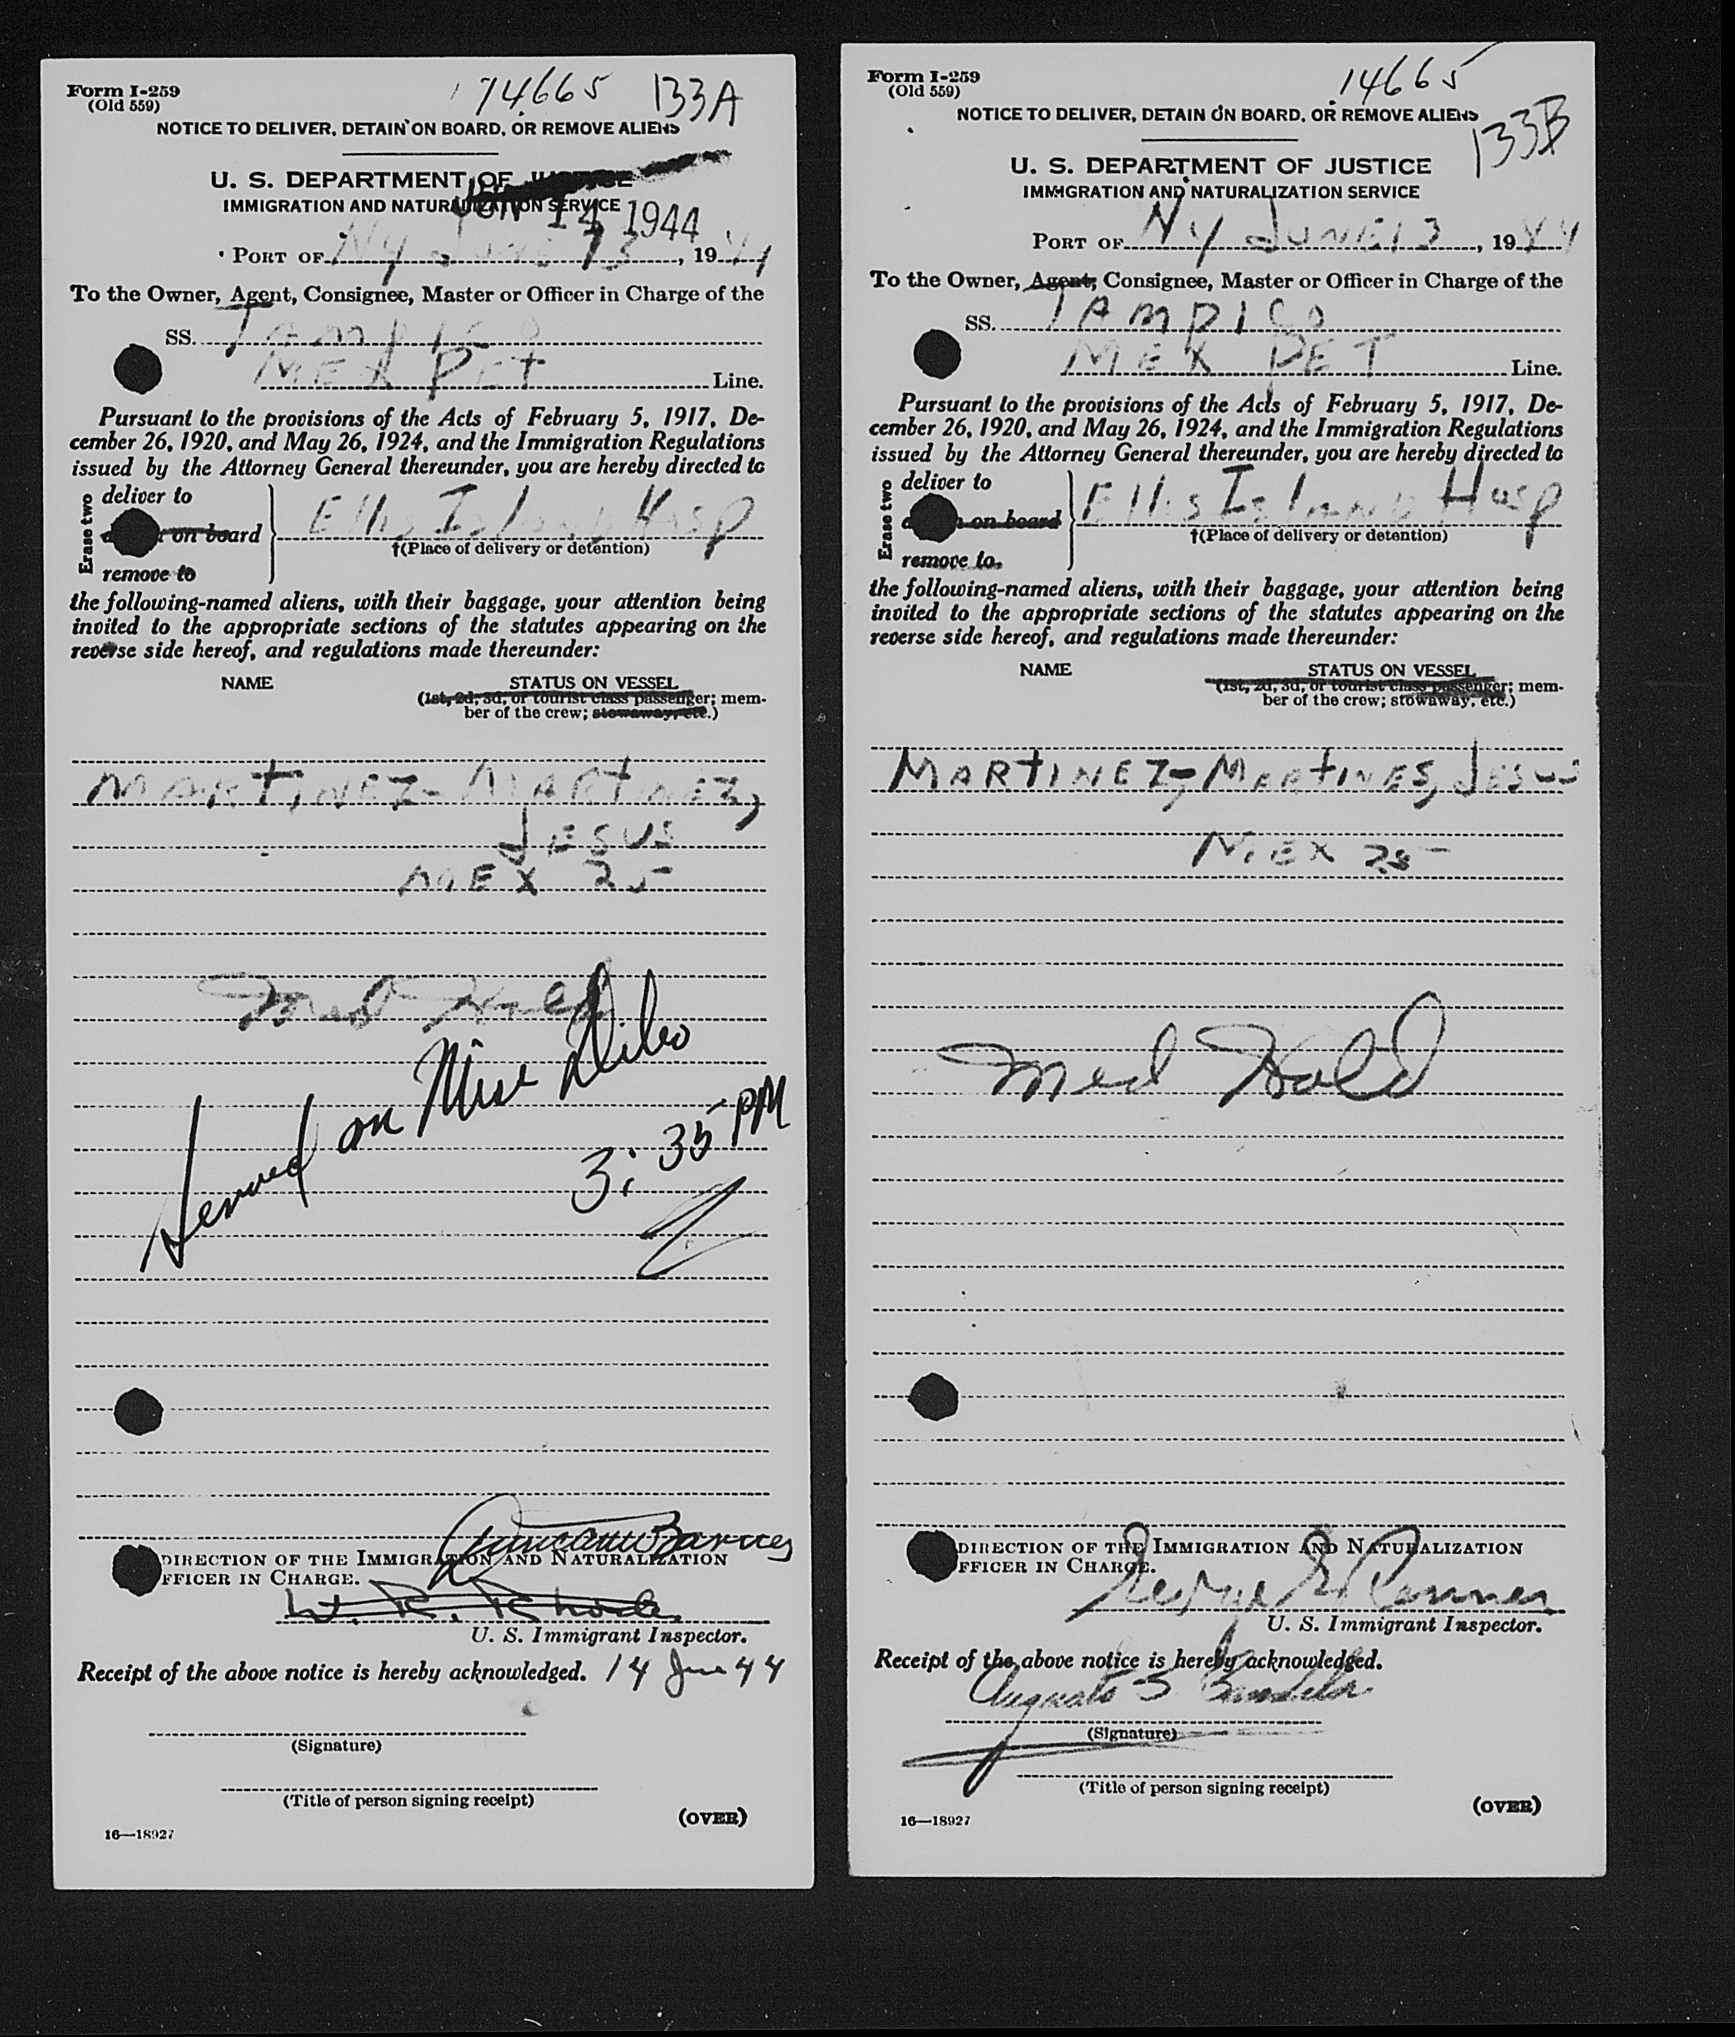 Form I-259
(Old 559)
14665 133A
NOTICE TO DELIVER, DETAIN ON BOARD, OR REMOVE ALIENS
U. S. DEPARTMENT OF JUSTICE
IMMIGRATION AND NATURALIZATION SERVICE
JUN 14 1944
PORT OF NY JUNE 13, 1944
To the Owner, Agent, Consignee, Master or Officer in Charge of the
SS. TAMPICO
MEX PET Line.
Pursuant to the provisions of the Acts of February 5, 1917, De-
cember 26, 1920, and May 26, 1924, and the Immigration Regulations
issued by the Attorney General thereunder, you are hereby directed to
Erase two
deliver to
on board
remove to
Ellis Island Hosp
†(Place of delivery or detention)
the following-named aliens, with their baggage, your attention being
invited to the appropriate sections of the statutes appearing on the
reverse side hereof, and regulations made thereunder:
NAME STATUS ON VESSEL
(1st, 2d, 3d, or tourist class passenger; mem-
ber of the crew; stowaway, etc.)
MARTINEZ-MARTINEZ,
JESUS
MEX 25
Med Hold
Served on Miss
3:35 PM
Barnes
DIRECTION OF THE IMMIGRATION AND NATURALIZATION
FFICER IN CHARGE.
W. R. Rhode
U. S. Immigrant Inspector.
Receipt of the above notice is hereby acknowledged. 14 June 44
(Signature)
(Title of person signing receipt)
(OVER)
16—18927
Form I-259
(Old 559)
14665
133B
NOTICE TO DELIVER, DETAIN ON BOARD, OR REMOVE ALIENS
U. S. DEPARTMENT OF JUSTICE
IMMIGRATION AND NATURALIZATION SERVICE
PORT OF NY JUNE 13, 1944
To the Owner, Agent, Consignee, Master or Officer in Charge of the
SS. TAMPICO
MEX PET Line.
Pursuant to the provisions of the Acts of February 5, 1917, De-
cember 26, 1920, and May 26, 1924, and the Immigration Regulations
issued by the Attorney General thereunder, you are hereby directed to
Erase two
deliver to
on board
remove to
Ellis Island Hosp
†(Place of delivery or detention)
the following-named aliens, with their baggage, your attention being
invited to the appropriate sections of the statutes appearing on the
reverse side hereof, and regulations made thereunder:
NAME STATUS ON VESSEL
(1st, 2d, 3d, or tourist class passenger; mem-
ber of the crew; stowaway, etc.)
MARTINEZ-MARTINES, JESUS
MEX 25
Med Hold
DIRECTION OF THE IMMIGRATION AND NATURALIZATION
FFICER IN CHARGE.
George Renner
U. S. Immigrant Inspector.
Receipt of the above notice is hereby acknowledged.
Augusto S
(Signature)
(Title of person signing receipt)
(OVER)
16—18927